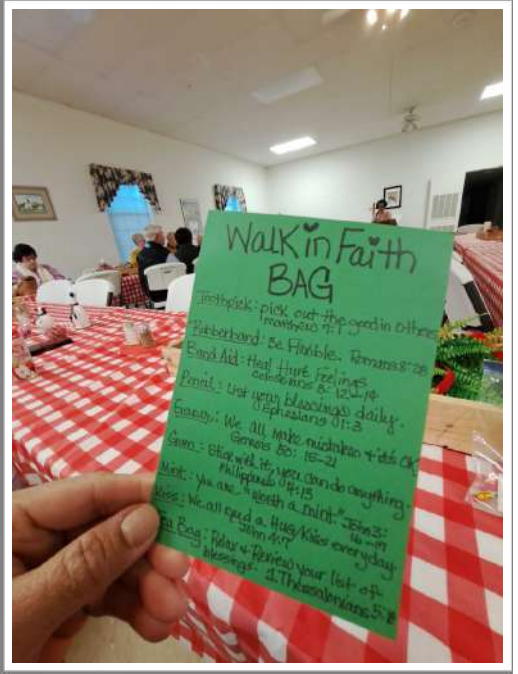 Walk in Faith
BAG
Toothpick: pick out the good in others
Matthew 7:1
Rubberband: Be Flexible. Romans 8:28
Band Aid: Heal Hurt Feelings
Colossians 3:12-14
Pencil: List your blessings daily.
Ephesians 1:3
Eraser: We all make mistakes & it's OK
Genesis 50:15-21
Gum: Stick with it, you can do anything.
Philippians 4:13
Mint: you are "worth a mint." John 3:
16-17
Kiss: We all need a Hug/Kiss everyday
John 4:7
Tea Bag: Relax & Review your list of
blessings. 1 Thessalonians 5:18